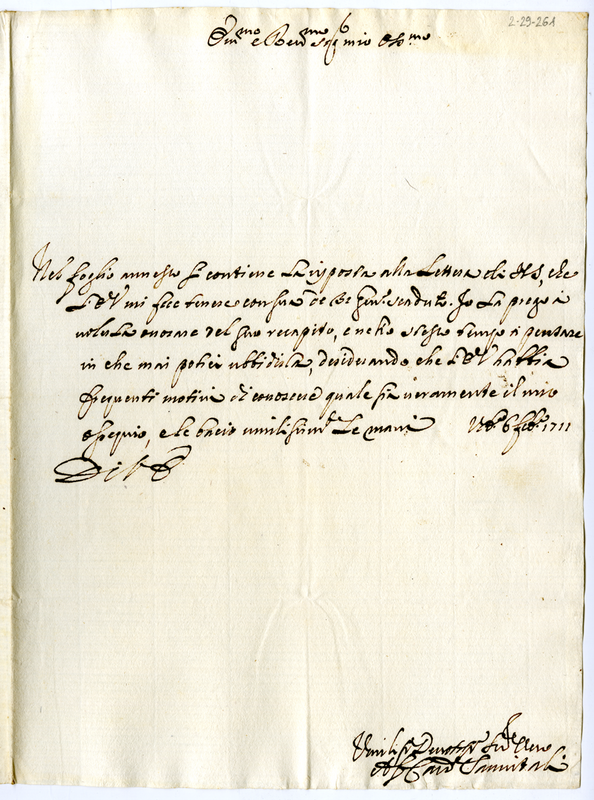 2-29-261
Em.mo e Rev.mo Sig.r mio Oss.mo
Nel foglio annesso si contiene la risposta alla lettera di NS, che
V.E. mi fece tenere con sua de 31 Gen.o caduto. Io la prego a
volerla onorare del suo recapito, e nello stesso tempo a pensare
in che mai potrei ubbidirla, desiderando che V.E. habbia
frequenti motivi di conoscere quale sia veramente il mio
ossequio, e le bacio umilissim.te le mani 6 Feb.o 1711
Di V E
Umiliss.o Devotiss.o Ser.re vero
Card.